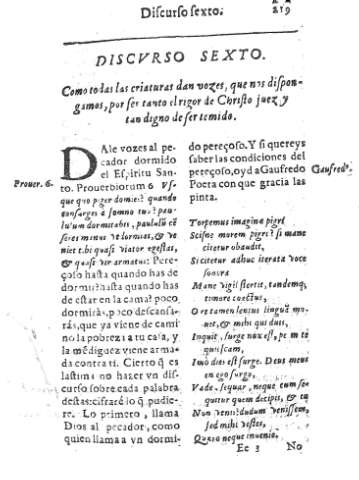 Discurso sexto.
219
DISCVRSO SEXTO.
Como todas las criaturas dan vozes, que nos dispon-
gamos, por ser tanto el rigor de Christo juez y
tan digno de ser temido.
DAle vozes al pe-
cador dormido
el Espiritu San-
Prouer. 6.
to. Prouerbiorum 6 Vs-
que quo piger dormies? quando
consurges à somno tuo? pau-
lulum dormitabis, paululũ cõ
seres manus vt dormias, & ve
niet tibi quasi viator egestas,
& quasi vir armatus: Pere-
çoso hasta quando has de
dormir? hasta quando has
de estar en la cama? poco
dormiràs, poco descansa-
ràs, que ya viene de cami
no la pobreza a tu casa, y
la mẽdiguez viene arma-
da contra ti. Cierto q̃ es
lastima no hazer vn dis-
curso sobre cada palabra
destas: cifrarè lo q̃ pudie-
re. Lo primero, llama
Dios al pecador, como
quien llama a vn dormi-
do pereçoso. Y si quereys
saber las condiciones del
pereçoso, oyd a Gaufredo
Gaufred.
Poeta con que gracia las
pinta.
Torpemus imagine pigri
Scisne morem pigri? si mane
citetur obaudit,
Si citetur adhuc iterata voce
sonora
Mane vigil stertit, tandemq;
timore coectus,
Ore tamen lentus linguã mo-
uet, & mihi quid ais,
Inquit, surge nox est, per m te
quiescam,
Imò dies est surge. Deus meus
en ego surgo,
Vade sequar, neque eum se-
quitur quem decipit, & tu
Non venis? dudum venissem,
sed mihi vestes,
Quæro neque inuenio.
Ee 3
No